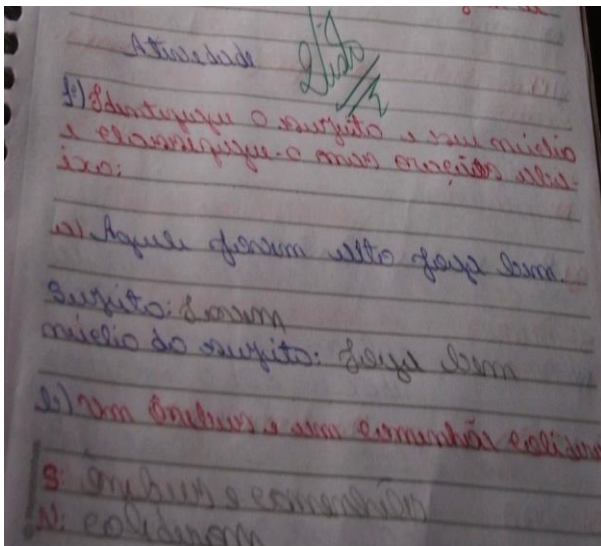 Atividade
1º) Identifique o sujeito e seu núcleo
e classifique-o nas orações abai-
ixo:
a) Aquele jovem alto joga bem.
Sujeito: Jovem
núcleo do sujeito: joga bem
b) Um ônibus e um caminhão colidiram
S: ônibus e caminhão
N: colidiram